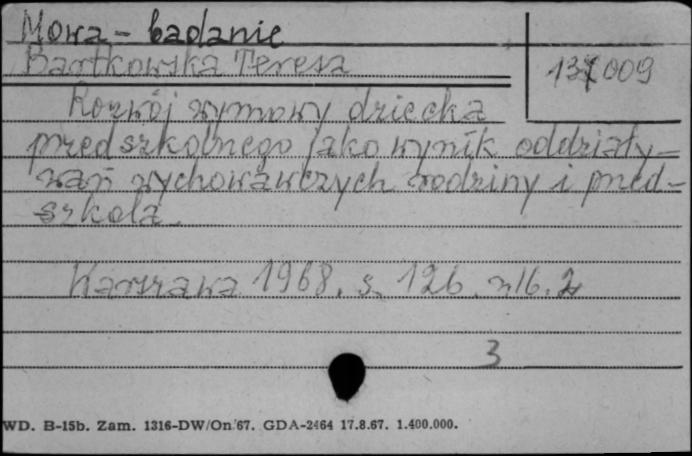 Mowa - badanie
Bartkowska Teresa
137009
Rozwój wymowy dziecka
przedszkolnego jako wynik oddziały-
wań wychowawczych rodziny i przed-
szkola.
Warszawa 1968. s. 126.
3
WD. B-15b. Zam. 1316-DW/On.'67. GDA-2464 17.8.67. 1.400.000.